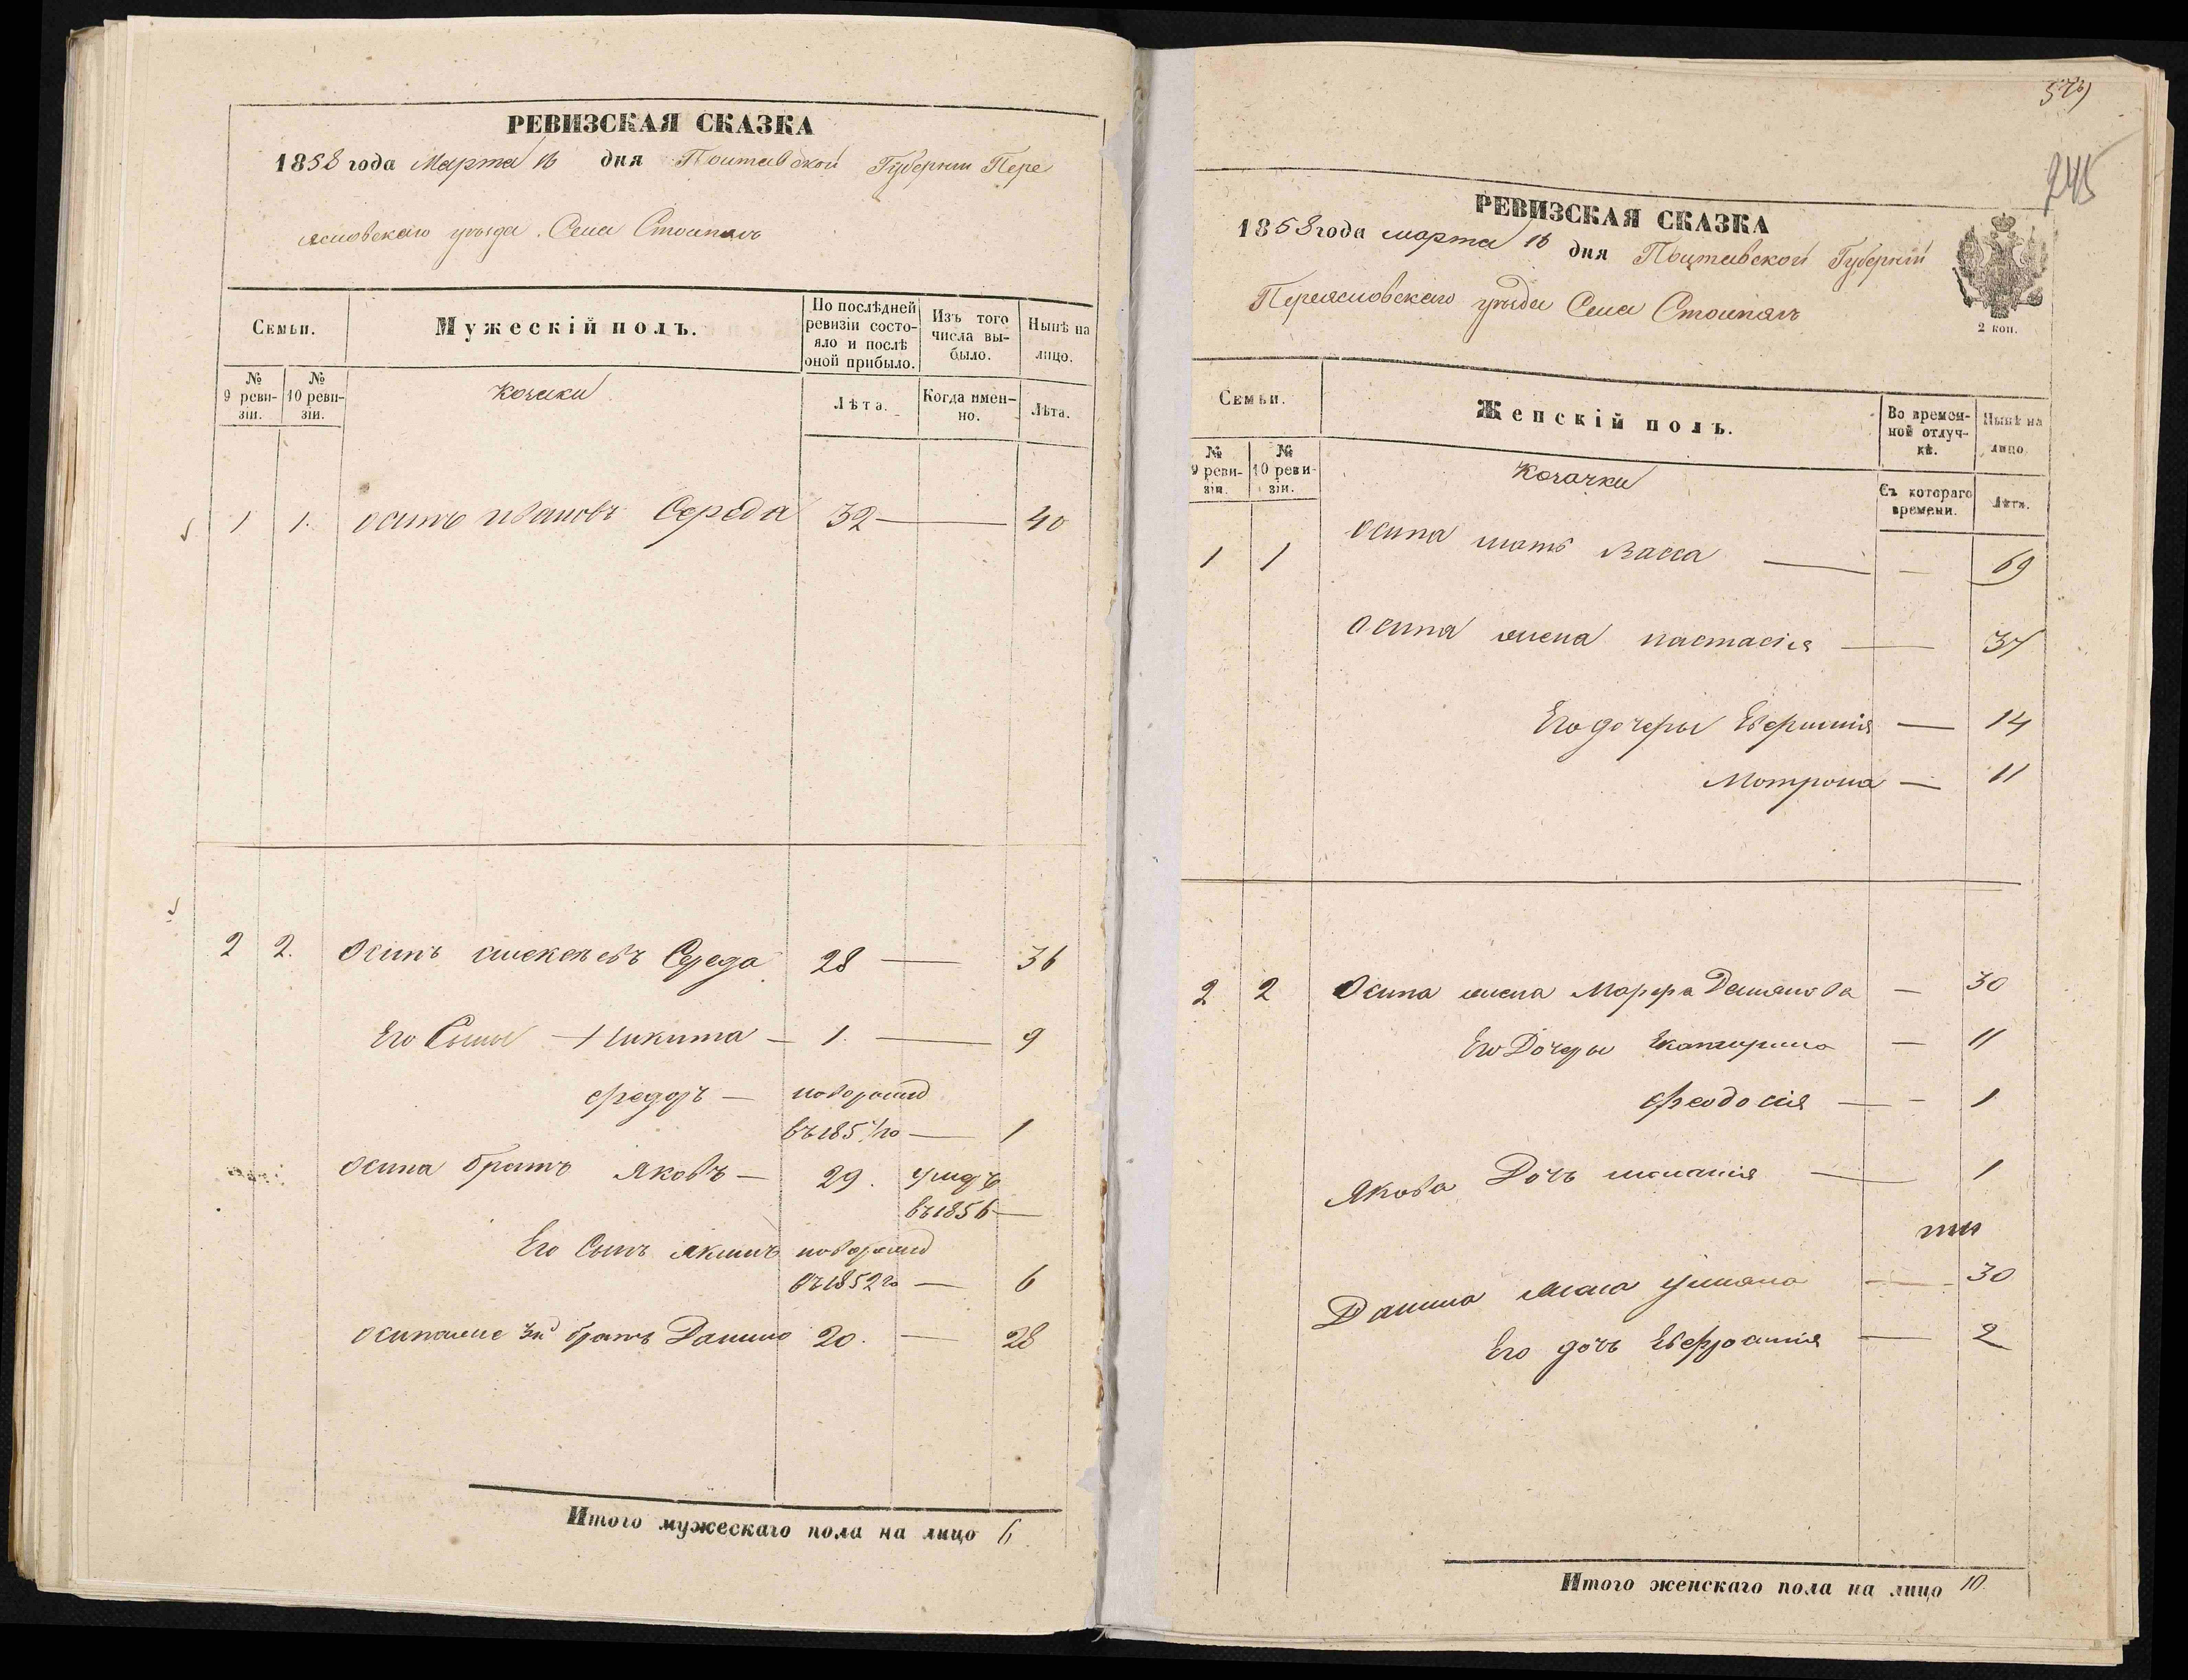 РЕВИЗСКАЯ СКАЗКА
1858 года Марта 16 дня Полтавской Губернии Пере
яславскаго уезда. Села Стоипягъ
Семьи.
Мужескій полъ.
По послѣдней ревизіи состояло и послѣ оной прибыло.
Изъ того числа выбыло.
Нынѣ на лицо.
№ 9 ревизіи.
№ 10 ревизіи.
Козаки
Лѣта.
Когда именно.
Лѣта.
1 1. осипъ ивановъ Середа 32 — 40
2 2. Осипъ алексѣевъ Середа 28 — 36
Его Сыны Никита — 1. — 9
Федоръ — новорожд
въ 1857 го — 1
осипа братъ яковъ — 29.
въ 1856 —
Его Сынъ якимъ новорожд
въ 1852 го — 6
осипа братъ Данило 20. — 28
Итого мужескаго пола на лицо 6
245
РЕВИЗСКАЯ СКАЗКА
1858 года марта 16 дня Полтавской Губерніи
Переяславскаго уезда Села Стоипягъ
2 коп.
Семьи.
Женскій полъ.
Во временной отлучкѣ.
Нынѣ на лицо
№ 9 ревизіи.
№ 10 ревизіи.
Козачки
Съ котораго времени.
Лѣта.
1 1 осипа мать Васса — — 69
осипа жена настасія — 37
Его дочеры — 14
Мотрона — 11
2 2 Осипа жена Марфа Демянова — 30
Его Дочеры Екатирина — 11
Феодосія — 1
Якова Дочь меланія — 1
Данила жена уляна — 30
Его дочь Евфросинія — 2
Итого женскаго пола на лицо 10